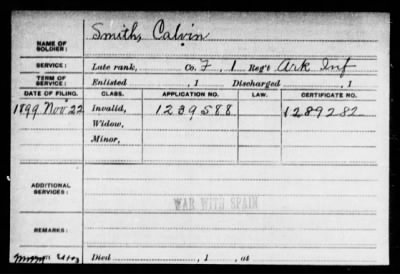 Smith, Calvin
NAME OF SOLDIER:
SERVICE: Late rank, Co. F, 1 Reg't Ark Inf
TERM OF SERVICE: Enlisted , 1 Discharged , 1
DATE OF FILING. CLASS. APPLICATION NO. LAW. CERTIFICATE NO.
1899 Nov 22 Invalid, 1239588 1289282
Widow,
Minor,
ADDITIONAL SERVICES:
WAR WITH SPAIN
REMARKS:
Died , 1 , at